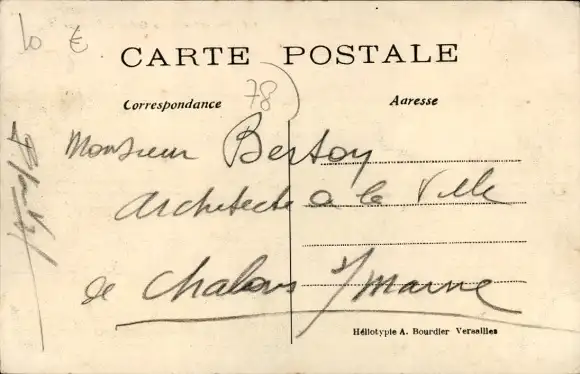 10 €
CARTE POSTALE
78
Correspondance Adresse
Monsieur Bertoy
Architecte a la Ville
de Chalons s/ Marne
Héliotypie A. Bourdier Versailles